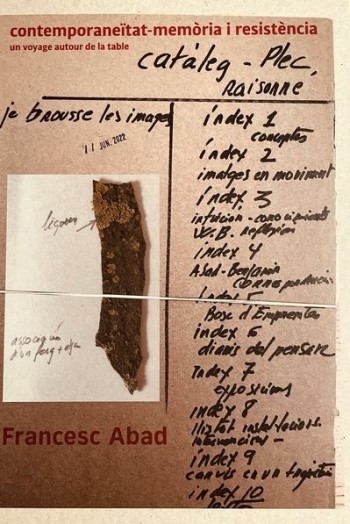 contemporaneïtat-memòria i resistència
un voyage autour de la table
catàleg - Plec,
raisonne
je brousse les images
11 JUN. 2022
índex 1
conceptes
índex 2
imatges en moviment
índex 3
intuicion - conocimiento
W.B. reflexión
índex 4
Abad-Benjamin
correspondencia
índex 5
Bosc d'Empremtes
índex 6
diaris del pensar
índex 7
exposicions
índex 8
llistat instal·lacions
intervencions -
índex 9
canvis en un trajecte
índex 10
liquen
Francesc Abad